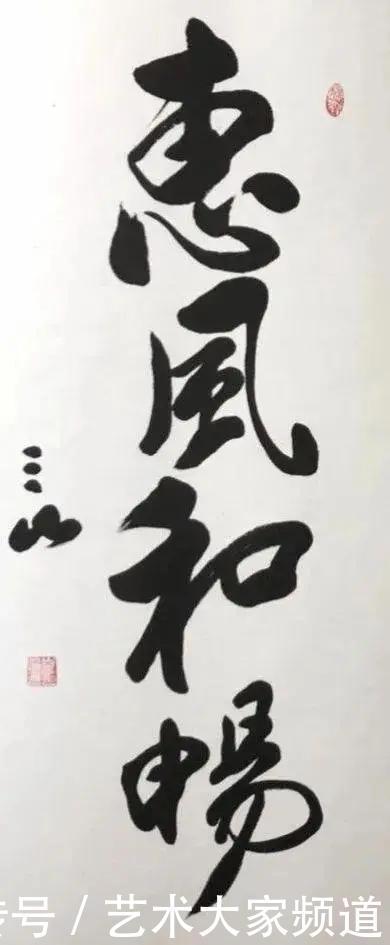 惠風和暢
三山
号 / 艺术大家频道